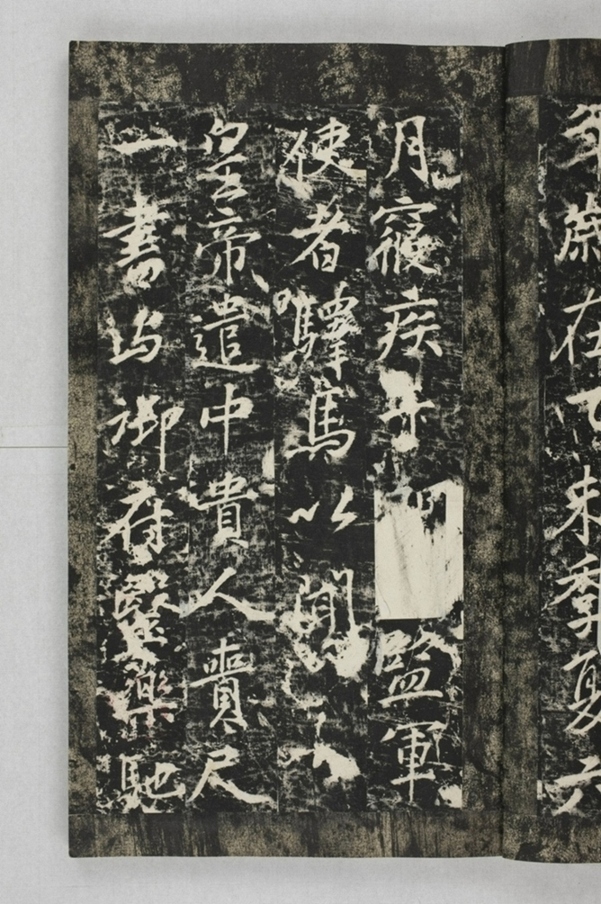 年歲在丁未季夏六
月寢疾 監軍
使者驛馬以聞
皇帝遣中貴人賷尺
一書 御府醫藥馳